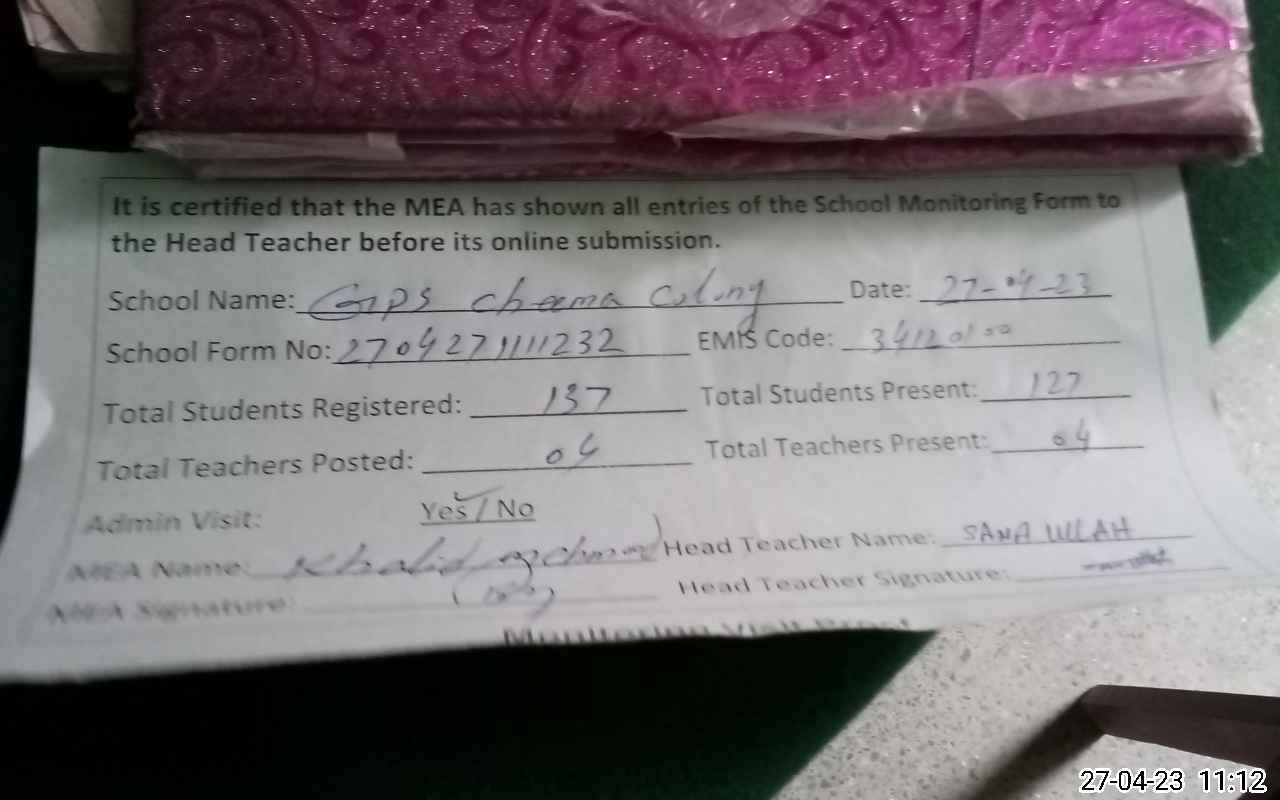 It is certified that the MEA has shown all entries of the School Monitoring Form to
the Head Teacher before its online submission.
School Name: GPS cheema Colony Date: 27-04-23
School Form No: 2704271111232 EMIS Code: 34120100
Total Students Registered: 137 Total Students Present: 127
Total Teachers Posted: 04 Total Teachers Present: 04
Admin Visit: Yes / No
MEA Name: Khalid Head Teacher Name: SANA ULLAH
MEA Signature: Head Teacher Signature:
Monitoring Visit Proof
27-04-23 11:12